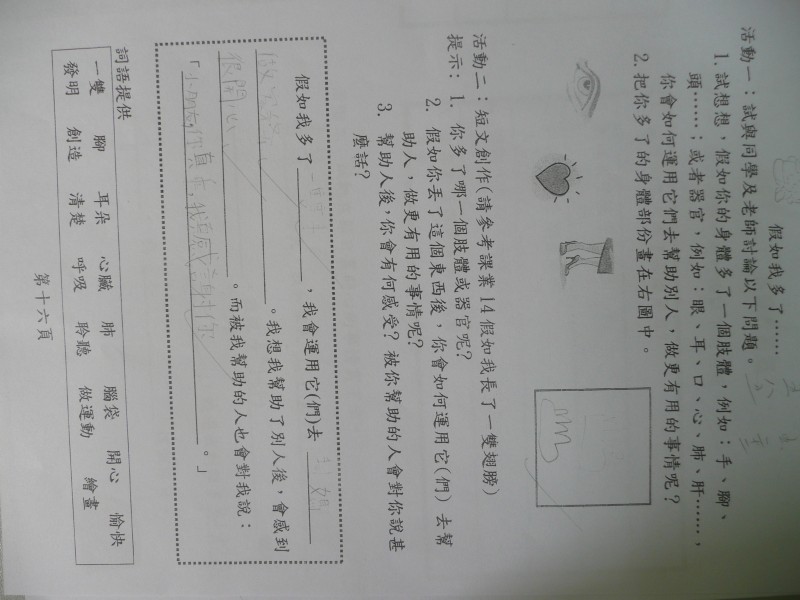 假如我多了……
活動一：試與同學及老師討論以下問題。
1. 試想想，假如你的身體多了一個肢體，例如：手、腳、
頭……；或者器官，例如：眼、耳、口、心、肺、肝……，
你會如何運用它們去幫助別人，做更有用的事情呢？
2. 把你多了的身體部份畫在右圖中。
活動二：短文創作(請參考課業 14 假如我長了一雙翅膀)
提示：1. 你多了哪一個肢體或器官呢？
2. 假如你丟了這個東西後，你會如何運用它(們) 去幫
助人，做更有用的事情呢？
3. 幫助人後，你會有何感受？被你幫助的人會對你說甚
麼話？
假如我多了，我會運用它(們)去
。我想我幫助了別人後，會感到
很開心。而被我幫助的人也會對我說：
「小朋友，你真乖，我很感謝你。」
詞語提供
一雙 腳 耳朵 心臟 肺 腦袋 開心 愉快
發明 創造 清楚 呼吸 聆聽 做運動 繪畫
第十六頁